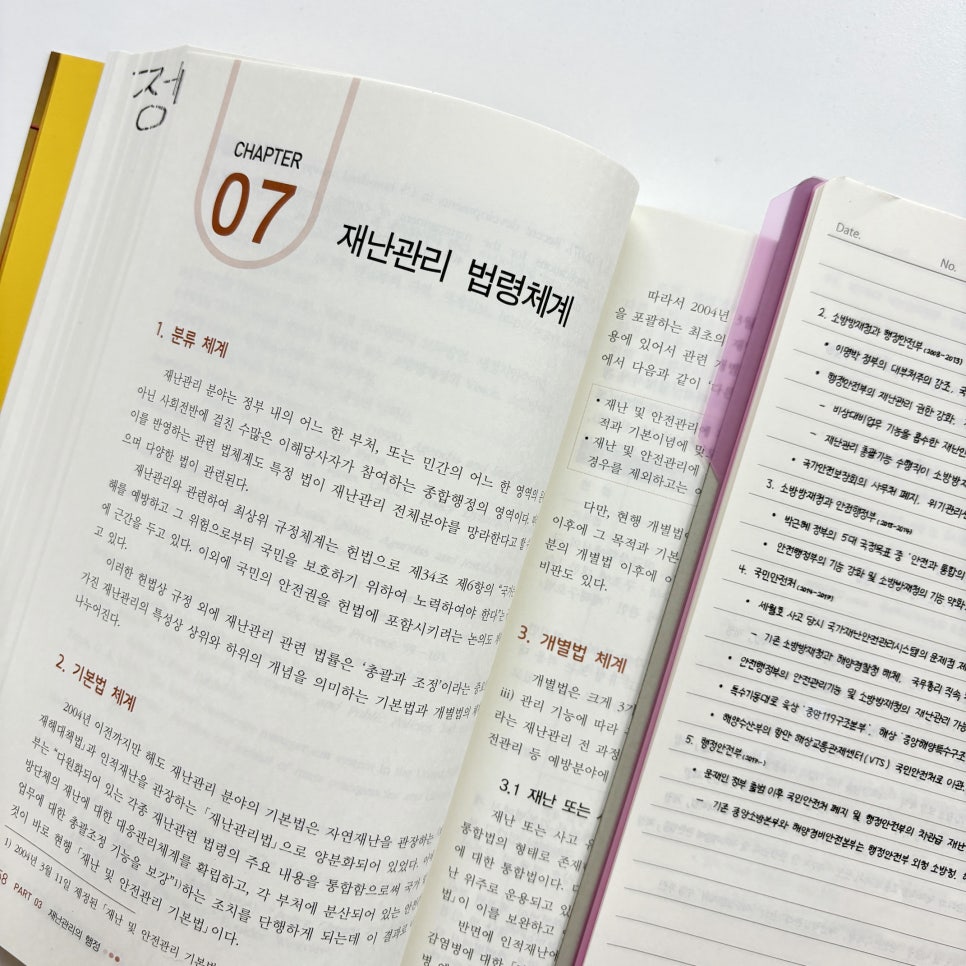 정
CHAPTER
07
재난관리 법령체계
1. 분류 체계
재난관리 분야는 정부 내의 어느 한 부처, 또는 민간의 어느 한 영역의
아닌 사회전반에 걸친 수많은 이해당사자가 참여하는 종합행정의 영역이다.
이를 반영하는 관련 법체계도 특정 법이 재난관리 전체분야를 망라한다고
으며 다양한 법이 관련된다.
재난관리와 관련하여 최상위 규정체계는 헌법으로 제34조 제6항의
해를 예방하고 그 위험으로부터 국민을 보호하기 위하여 노력하여야 한다"는
에 근간을 두고 있다. 이외에 국민의 안전권을 헌법에 포함시키려는 논의도
고 있다.
이러한 헌법상 규정 외에 재난관리 관련 법률은 '총괄과 조정'이라는
가진 재난관리의 특성상 상위와 하위의 개념을 의미하는 기본법과 개별법의
나누어진다.
2. 기본법 체계
2004년 이전까지만 해도 재난관리 분야의 기본법은 자연재난을 관장하는
재해대책법」과 인적재난을 관장하는 「재난관리법」으로 양분화되어 있었다.
부는 "다원화되어 있는 각종 재난관련 법령의 주요 내용을 통합함으로써 국가
방단체의 재난에 대한 대응관리체계를 확립하고, 각 부처에 분산되어 있는
업무에 대한 총괄조정 기능을 보강"1)하는 조치를 단행하게 되는데 이 결과로
것이 바로 현행 「재난 및 안전관리 기본법」이다.
1) 2004년 3월 11일 제정된 「재난 및 안전관리 기본법
58 PART 03 재난관리의 행정
따라서 2004년
을 포괄하는 최초의
용에 있어서 관련
에서 다음과 같이
• 재난 및 안전관리에
적과 기본이념에
• 재난 및 안전관리에
경우를 제외하고는
다만, 현행 개별법
이후에 그 목적과 기본
분의 개별법 이후에
비판도 있다.
3. 개별법 체계
개별법은 크게 3가
iii) 관리 기능에 따라
라는 재난 전 과정
전관리 등 예방분야에
3.1 재난 또는
재난 또는 사고
통합법의 형태로 존재
에 대한 통합법이다.
난 위주로 운용되고 있
법」이 이를 보완하고
반면에 인적재난에
감염병에 대한
Date.
No.
2. 소방방재청과 행정안전부 (2008-2013)
• 이명박 정부의 대부처주의 강조,
• 행정안전부의 재난관리 권한 강화:
- 비상대비업무 기능을 흡수한 재난안
- 재난관리 총괄기능 수행직이 소방방재
• 국가안전보장회의 사무처 폐지, 위기관리
3. 소방방재청과 안전행정부 (2013-2014)
• 박근혜 정부의 5대 국정목표 중 '안전과 통합의
• 안전행정부의 기능 강화 및 소방방재청의 기능 약화
4. 국민안전처 (2014-2017)
• 세월호 사고 당시 국가재난안전관리시스템의 문제점
- 기존 소방방재청과 해양경찰청 해체, 국무총리 직속
• 안전행정부의 안전관리기능 및 소방방재청의 재난관리
• 특수기동대로 육상 '중앙119구조본부', 해상 '중앙해양특수구조
• 해양수산부의 항만 해상교통관제센터(VTS) 국민안전처로 이관
5. 행정안전부 (2017-)
• 문재인 정부 출범 이후 국민안전처 폐지 및 행정안전부의 차관급 재난
- 기존 중앙소방본부와 해양경비안전본부는 행정안전부 외청 소방청,